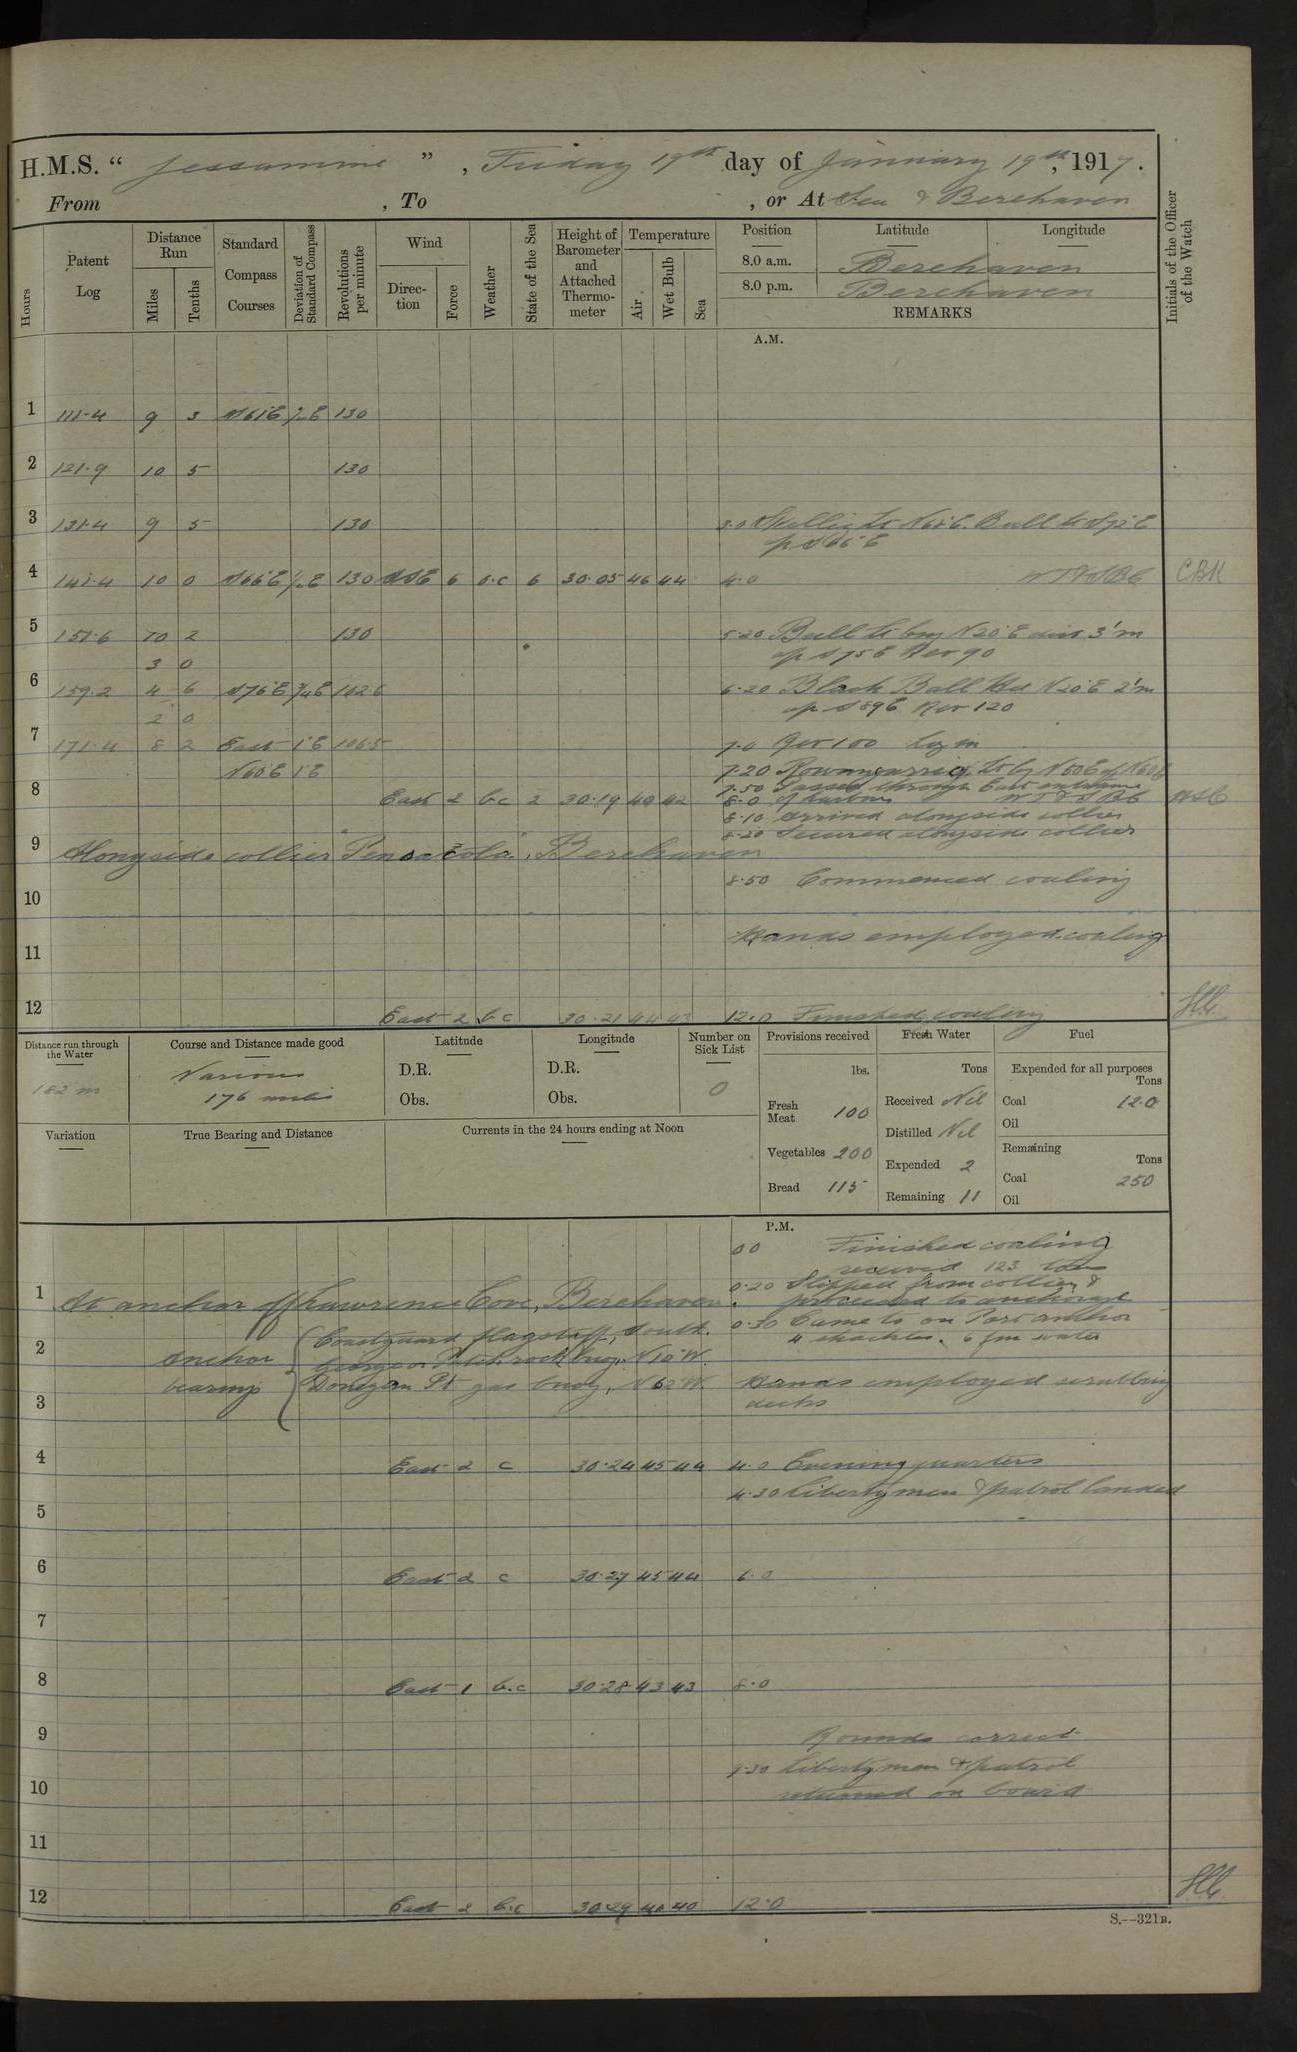 H.M.S. " Jessamine ", Friday 19th day of January 19th, 1917.
From , To , or At Sea & Berehaven
Initials of the Officer of the Watch
Hours
Patent Log
Distance Run
Miles
Tenths
Standard Compass Courses
Deviation of Standard Compass
Revolutions per minute
Wind
Direction
Force
Weather
State of the Sea
Height of Barometer and Attached Thermometer
Temperature
Air
Wet Bulb
Sea
Position Latitude Longitude
8.0 a.m. Berehaven
8.0 p.m. Berehaven
REMARKS
A.M.
1 111.4 9 5 S61°E 130
2 121.9 10 5 130
3 131.4 9 5 130 3.0
4 141.4 10 0 S66°E 130 SSE 6 o.c 6 30.05 46 44 4.0 CBH
5 151.6 10 2 130 5.20 Bull Lt brg N20°E dist 3'm
3 0 S75E Rev 90
6 159.2 4 6 S76°E 102.6 6.20 Black Ball Hd N20°E 2'm
2 0 S89E Rev 120
7 171.4 8 2 East 1°E 106.5 7.0 Rev 100 log in
N60°E 1°E 7.20 Roancarrig Lt
7.50 Passed through East entrance
8 East 2 b.c 2 30.19 40 42 8.0 of harbour
8.10 Arrived alongside collier
8.20 Secured alongside collier
9 Alongside collier "Pensacola", Berehaven
8.50 Commenced coaling
10
Hands employed coaling
11
12 East 2 b.c 30.21 44 43 12.0 Finished coaling
Distance run through the Water
182 m
Course and Distance made good
Various
176 miles
Latitude
D.R.
Obs.
Longitude
D.R.
Obs.
Number on Sick List
0
Provisions received
lbs.
Fresh Meat 100
Vegetables 200
Bread 115
Fresh Water
Tons
Received Nil
Distilled Nil
Expended 2
Remaining 11
Fuel
Expended for all purposes
Tons
Coal 12.0
Oil
Remaining
Tons
Coal 250
Oil
Variation
True Bearing and Distance
Currents in the 24 hours ending at Noon
P.M.
0.0 Finished coaling
received 123 tons
0.20 Slipped from collier &
1 At anchor off Lawrence Cove, Berehaven. proceeded to anchorage
0.30 Came to on Port anchor
4 shackles. 6 fm water
2 Anchor bearings
Coastguard flagstaff, South.
George or Patch rock buoy, N10°W.
Donegan Pt gas buoy, N60°W. Hands employed scrubbing
3 decks
4 East 2 c 30.24 45 44 4.0 Evening quarters
4.30 Liberty men & patrol landed
5
6 East 2 c 30.27 45 44 6.0
7
8 East 1 b.c 30.28 43 43 8.0
9 Rounds correct
9.30 Liberty men & patrol
10 returned on board
11
12 East 2 b.c 30.29 40 40 12.0
S.—321B.